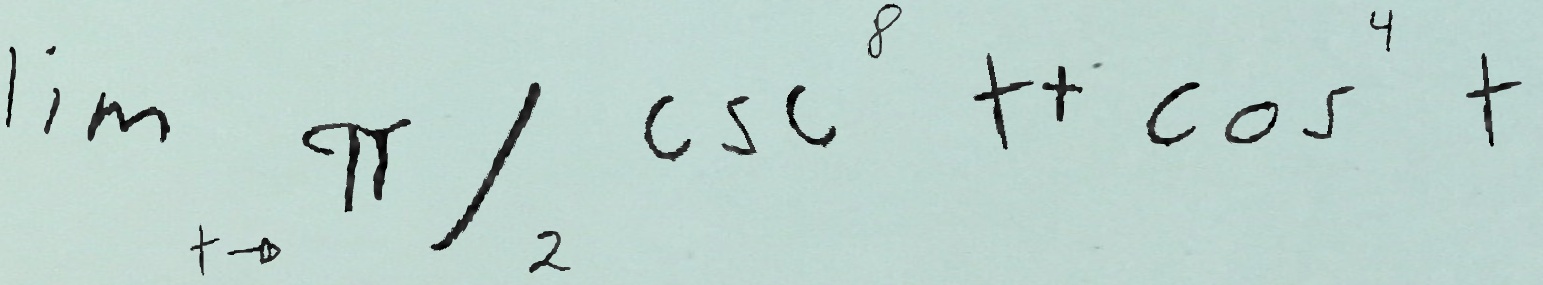 lim t→π/2 csc⁸ t + cos⁴ t